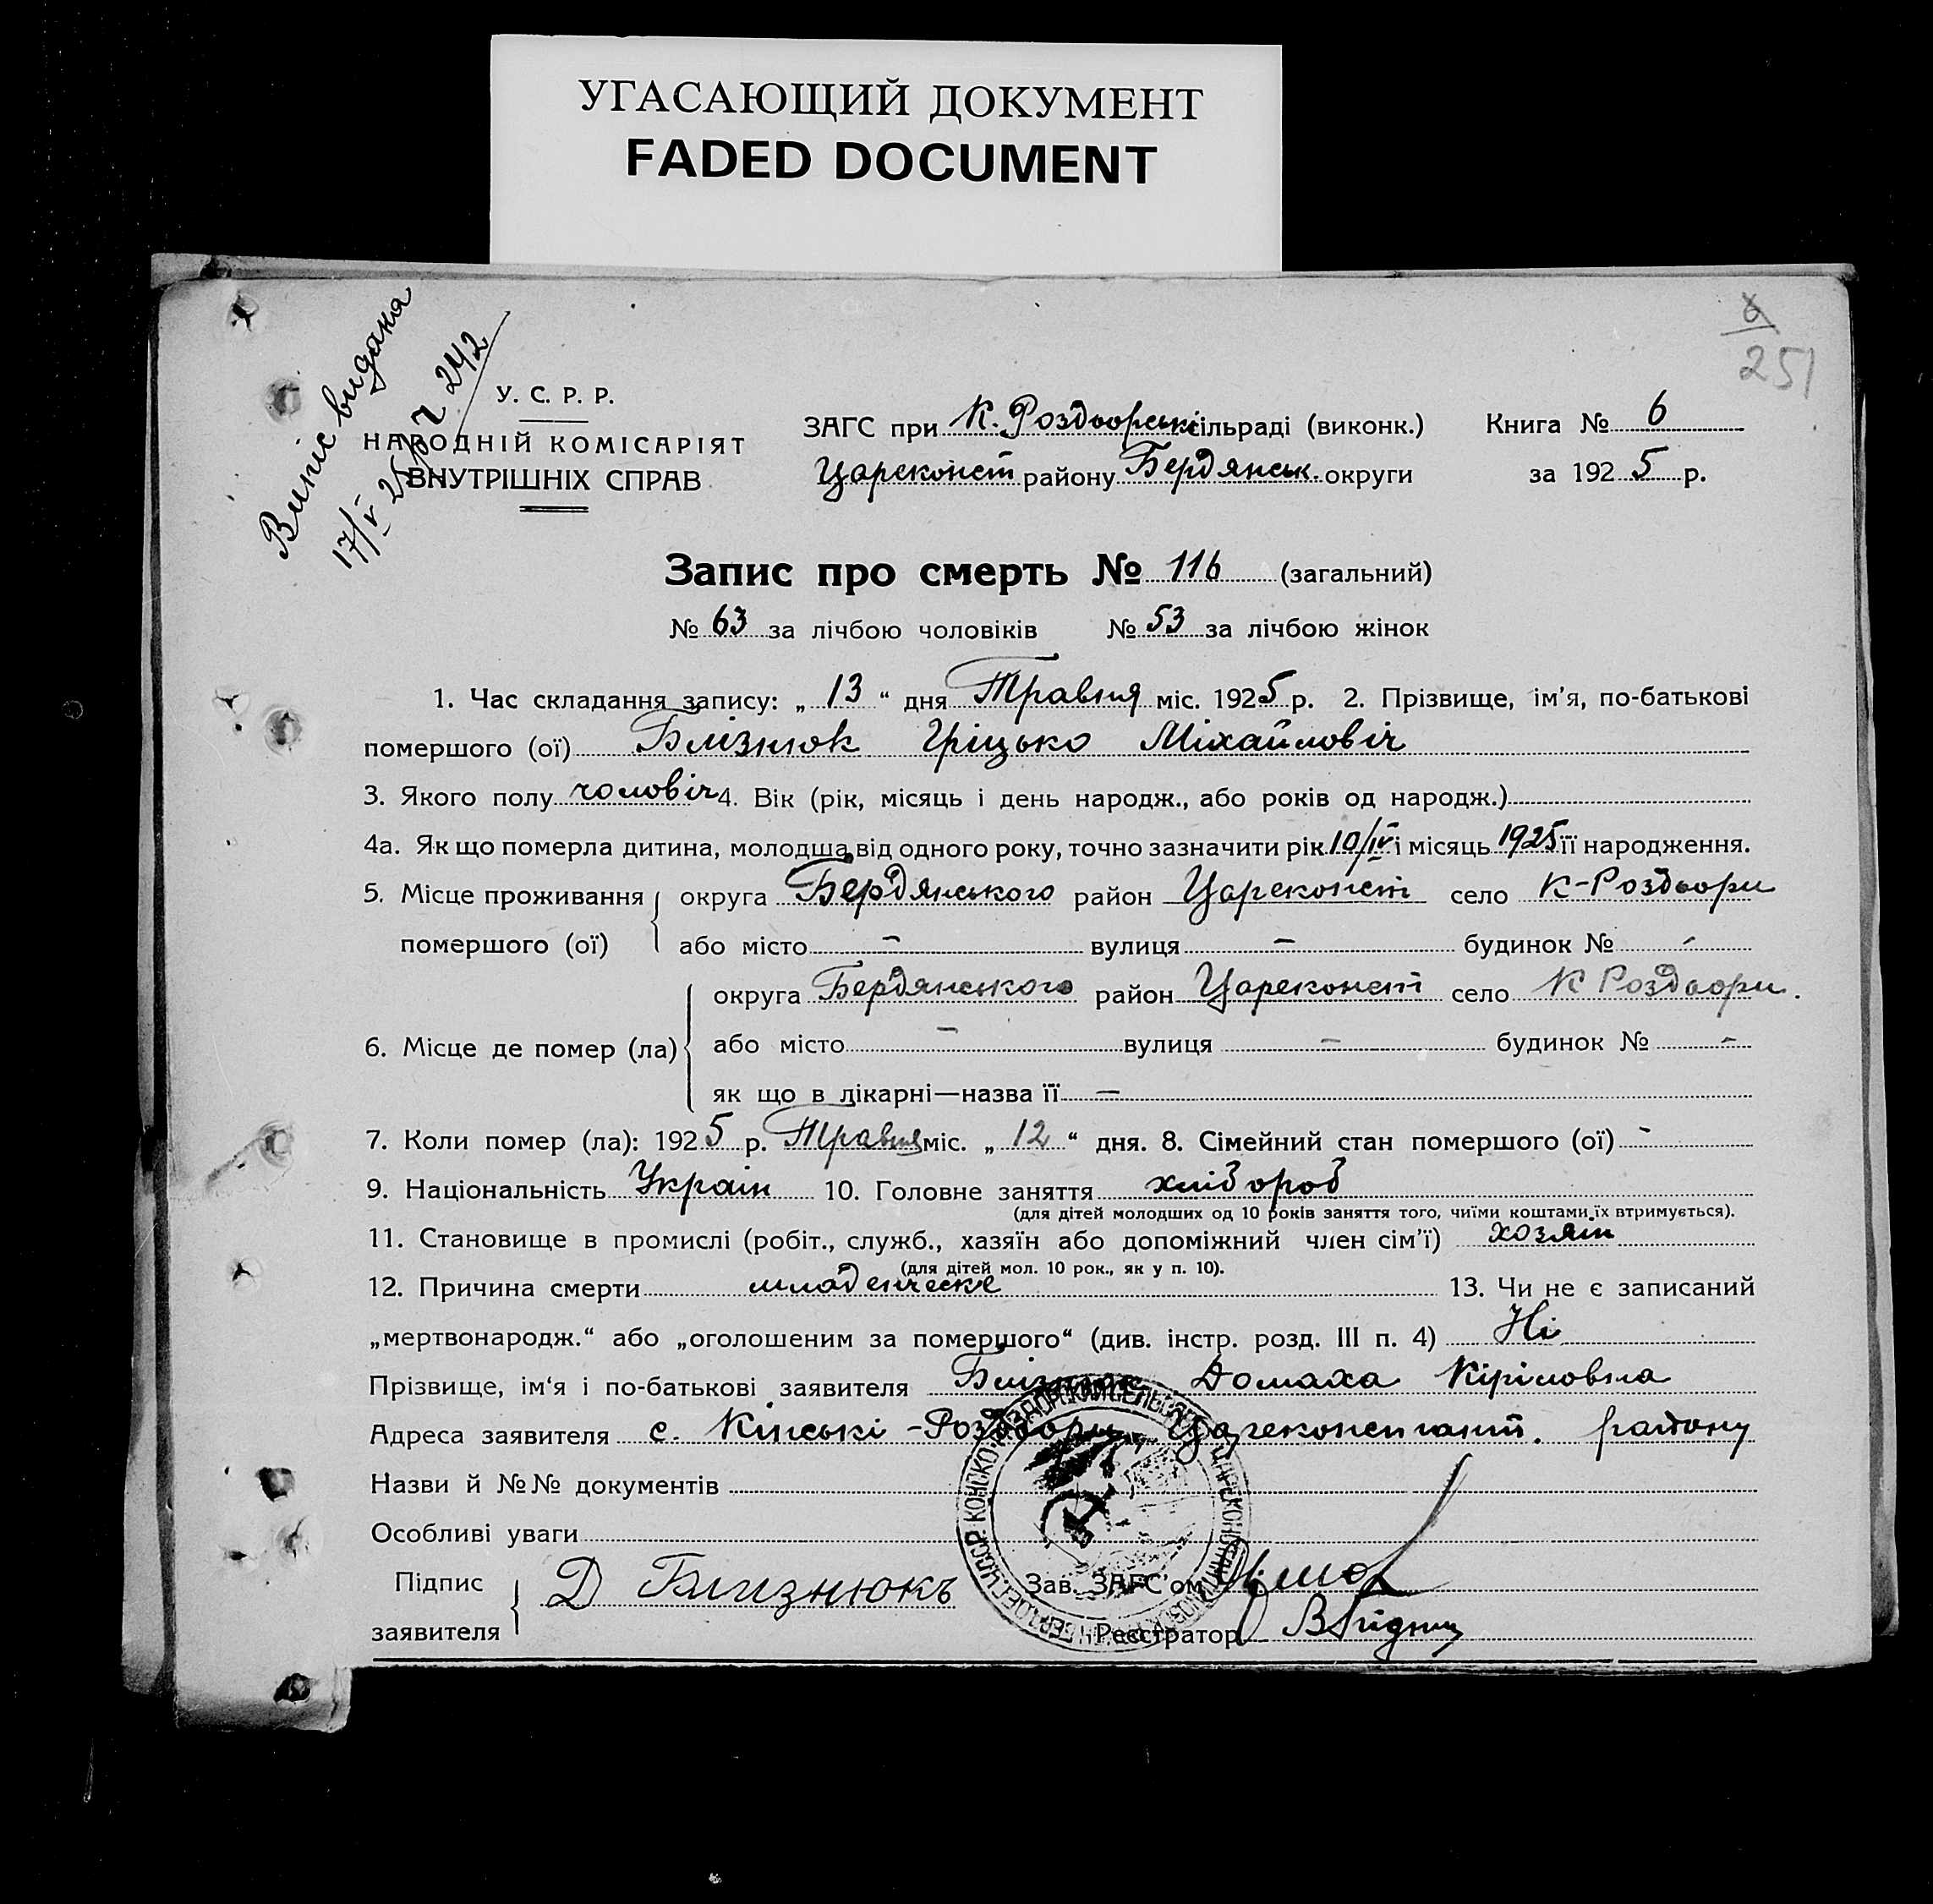 УГАСАЮЩИЙ ДОКУМЕНТ
FADED DOCUMENT
6
251
Випіс видана
17/V 25 р 242
У. С. Р. Р.
НАРОДНІЙ КОМІСАРІЯТ
ВНУТРІШНІХ СПРАВ
ЗАГС при К. Роздорські сільраді (виконк.) Книга № 6
Цареконст району Бердянськ. округи за 1925 р.
Запис про смерть № 116 (загальний)
№ 63 за лічбою чоловіків № 53 за лічбою жінок
1. Час складання запису: „ 13 “ дня Травня міс. 1925 р. 2. Прізвище, ім'я, по-батькові
помершого (ої) Блізнюк Гріцько Міхайловіч
3. Якого полу чоловіч 4. Вік (рік, місяць і день народж., або років од народж.)
4а. Як що померла дитина, молодша від одного року, точно зазначити рік 10/IV і місяць 1925 її народження.
5. Місце проживання округа Бердянського район Цареконст село К-Роздори
помершого (ої) або місто – вулиця – будинок № -
округа Бердянського район Цареконст село К Роздори.
6. Місце де помер (ла) або місто – вулиця – будинок № –
як що в лікарні—назва її —
7. Коли помер (ла): 1925 р. Травня міс. „ 12 “ дня. 8. Сімейний стан помершого (ої) -
9. Національність Україн 10. Головне заняття хлібороб
(для дітей молодших од 10 років заняття того, чиїми коштами їх втримується).
11. Становище в промислі (робіт., служб., хазяїн або допоміжний член сім'ї) хозяін
(для дітей мол. 10 рок., як у п. 10).
12. Причина смерти младенческе 13. Чи не є записаний
„мертвонародж.“ або „оголошеним за помершого“ (див. інстр. розд. III п. 4) Ні
Прізвище, ім'я і по-батькові заявителя Блізнюк Домаха Кіріловна
Адреса заявителя с. Кінські-Роздори Цареконстант. району
Назви й №№ документів
Особливі уваги
Підпис
заявителя Д Близнюкъ
Зав. ЗАГС'ом
Реєстратор